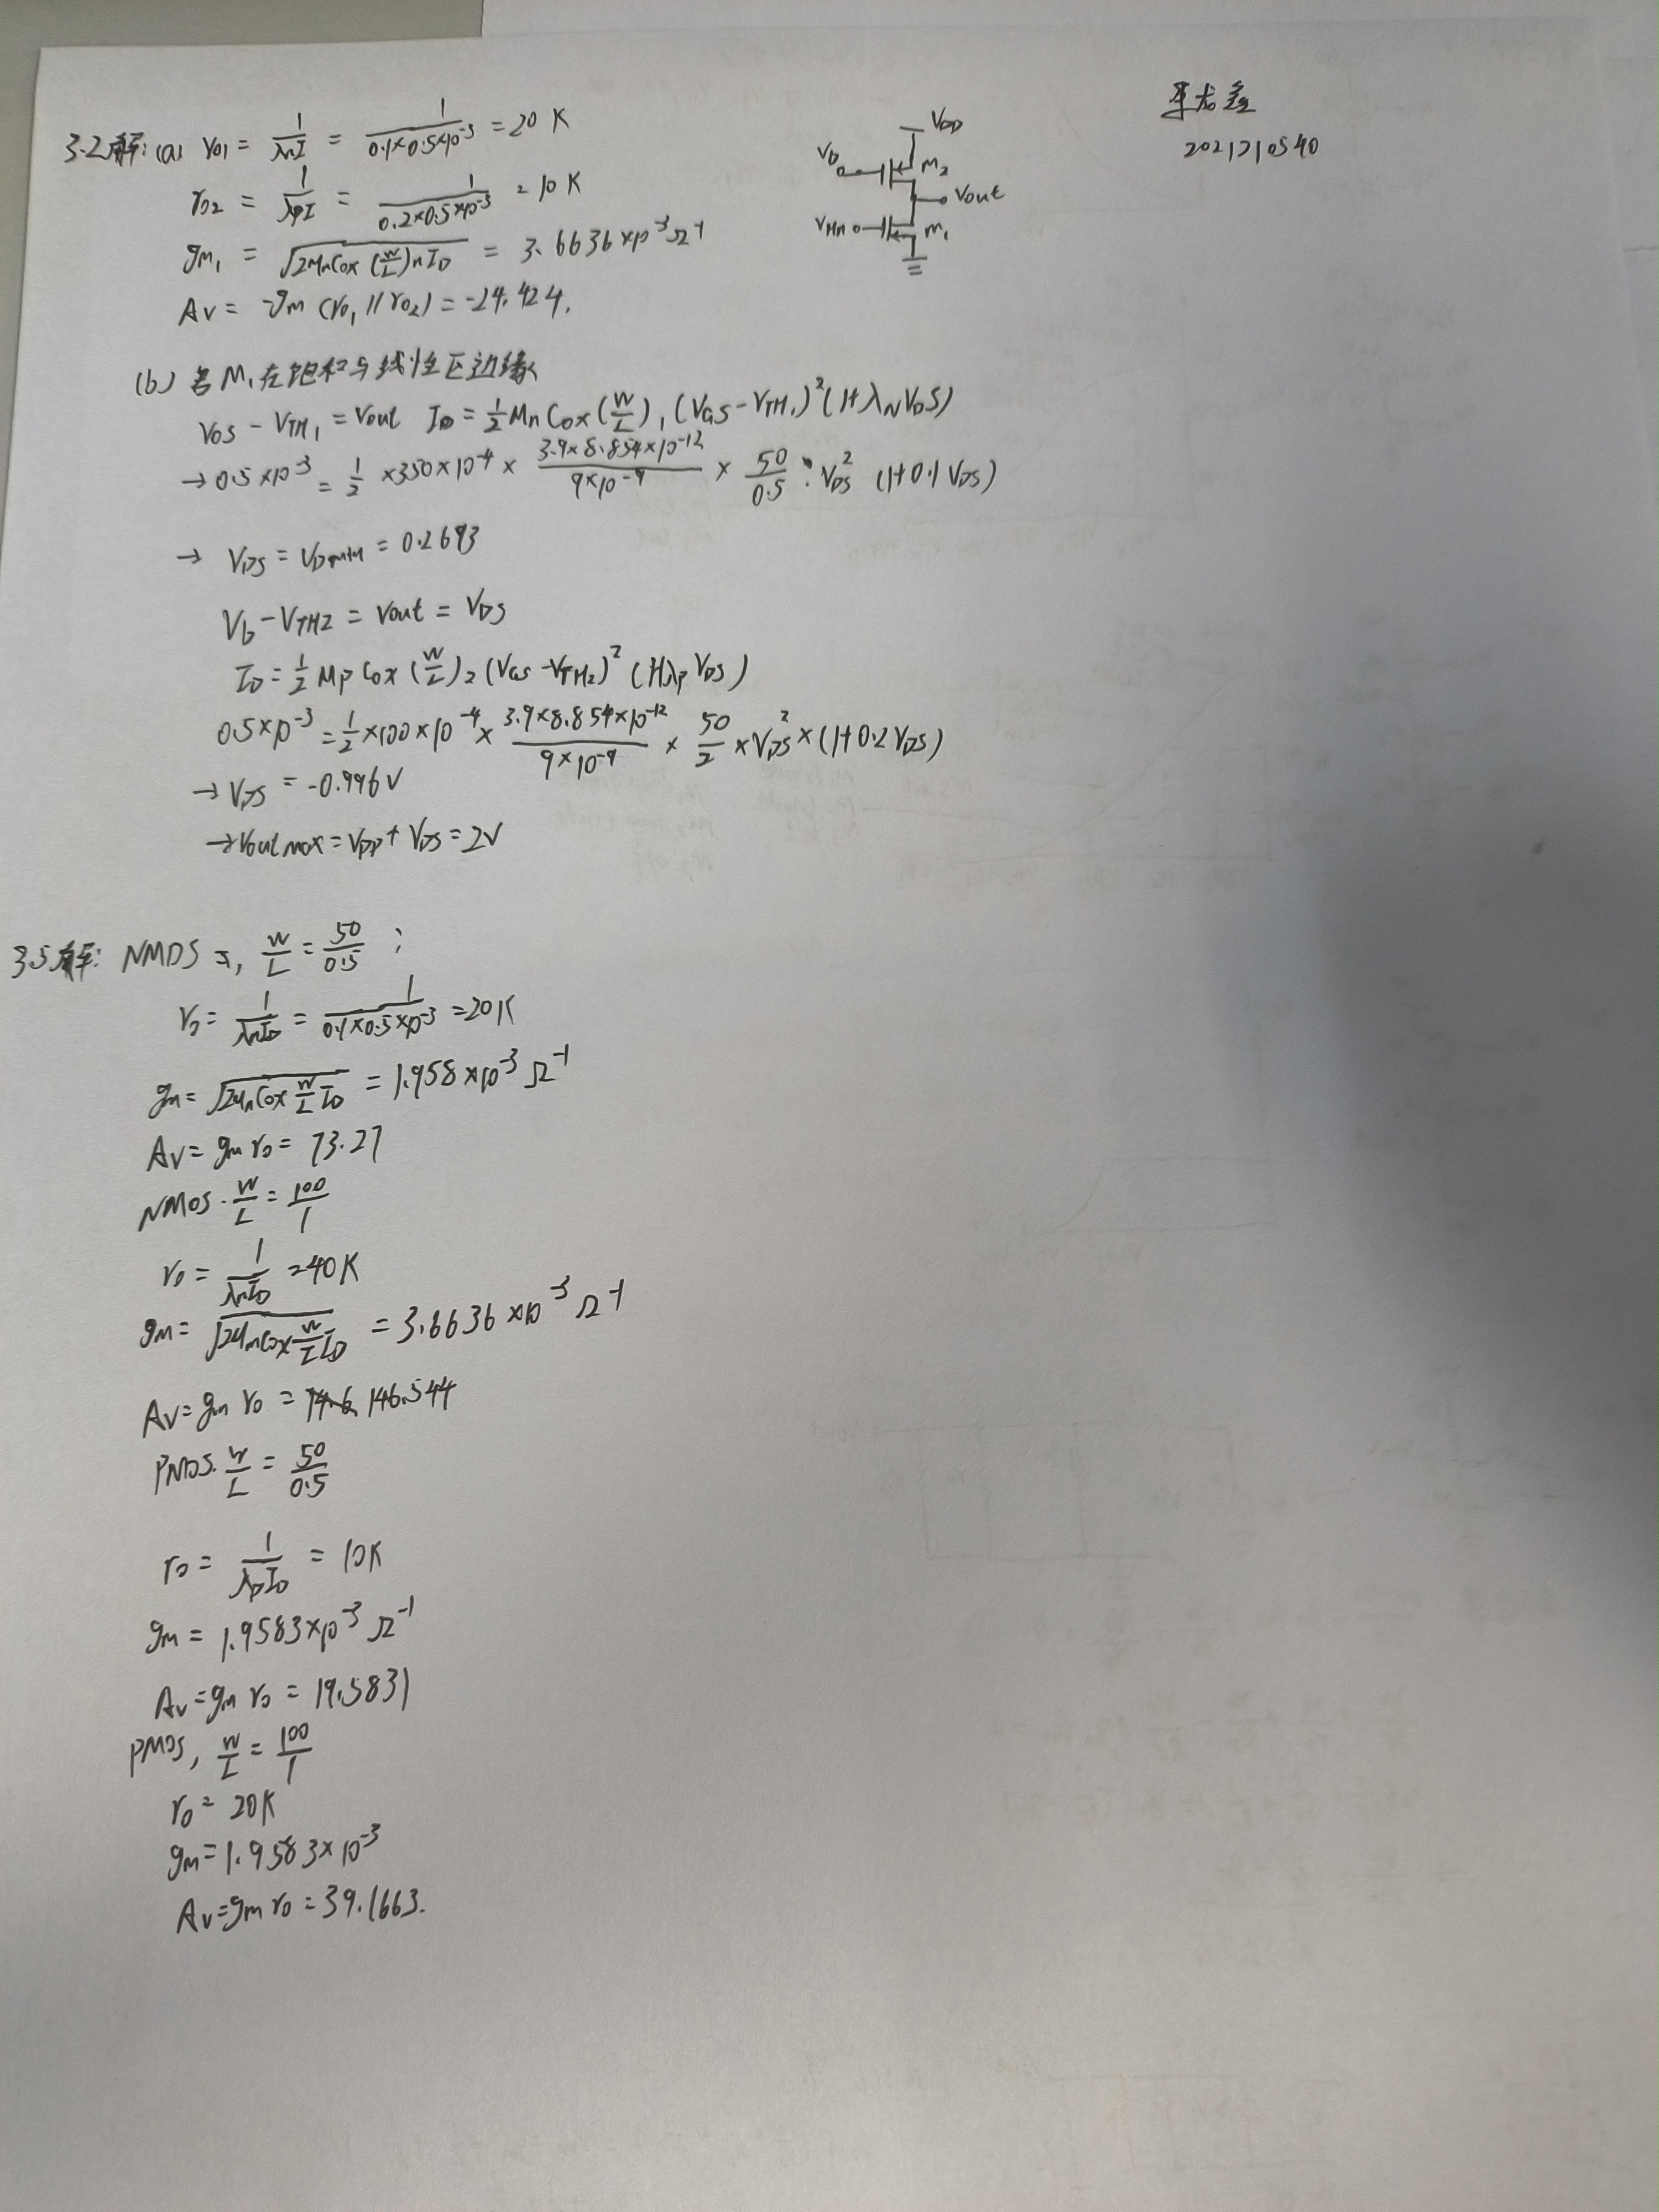 2021710540
3.2解: (a) r01 = 1/λnI = 1/(0.1×0.5×10^-3) = 20 K
r02 = 1/λpI = 1/(0.2×0.5×10^-3) = 10 K
gm1 = √(2MnCox (W/L)n ID) = 3.6636×10^-3 Ω^-1
Av = -gm (r01 // r02) = -24.424.
VDD
Vb
M2
Vout
M1
(b) 若 M1 在饱和与线性区边缘
VGS - VTH1 = Vout ID = 1/2 Mn Cox (W/L)1 (VGS - VTH1)^2 (1+λN VDS)
→ 0.5×10^-3 = 1/2 ×350×10^-4 × (3.9×8.854×10^-12)/(9×10^-9) × 50/0.5 · VDS^2 (1+0.1 VDS)
→ VDS = VDmin = 0.2693
Vb - VTH2 = Vout = VDS
ID = 1/2 Mp Cox (W/L)2 (VGS - VTH2)^2 (1+λp VDS)
0.5×10^-3 = 1/2 ×100×10^-4 × (3.9×8.854×10^-12)/(9×10^-9) × 50/2 × VDS^2 × (1+0.2VDS)
→ VDS = -0.996V
→ Voutmax = VDD + VDS = 2V
3.5解: NMOS 元, W/L = 50/0.5 ;
r0 = 1/λnID = 1/(0.1×0.5×10^-3) = 20K
gm = √(2μnCox W/L ID) = 1.958×10^-3 Ω^-1
Av = gm r0 = 73.27
NMOS. W/L = 100/1
r0 = 1/λnID = 40K
gm = √(2μnCox W/L ID) = 3.6636×10^-3 Ω^-1
Av = gm r0 = 146.544
PMOS. W/L = 50/0.5
r0 = 1/λpID = 10K
gm = 1.9583×10^-3 Ω^-1
Av = gm r0 = 19.5831
PMOS, W/L = 100/1
r0 = 20K
gm = 1.9583×10^-3
Av = gm r0 = 39.1663.